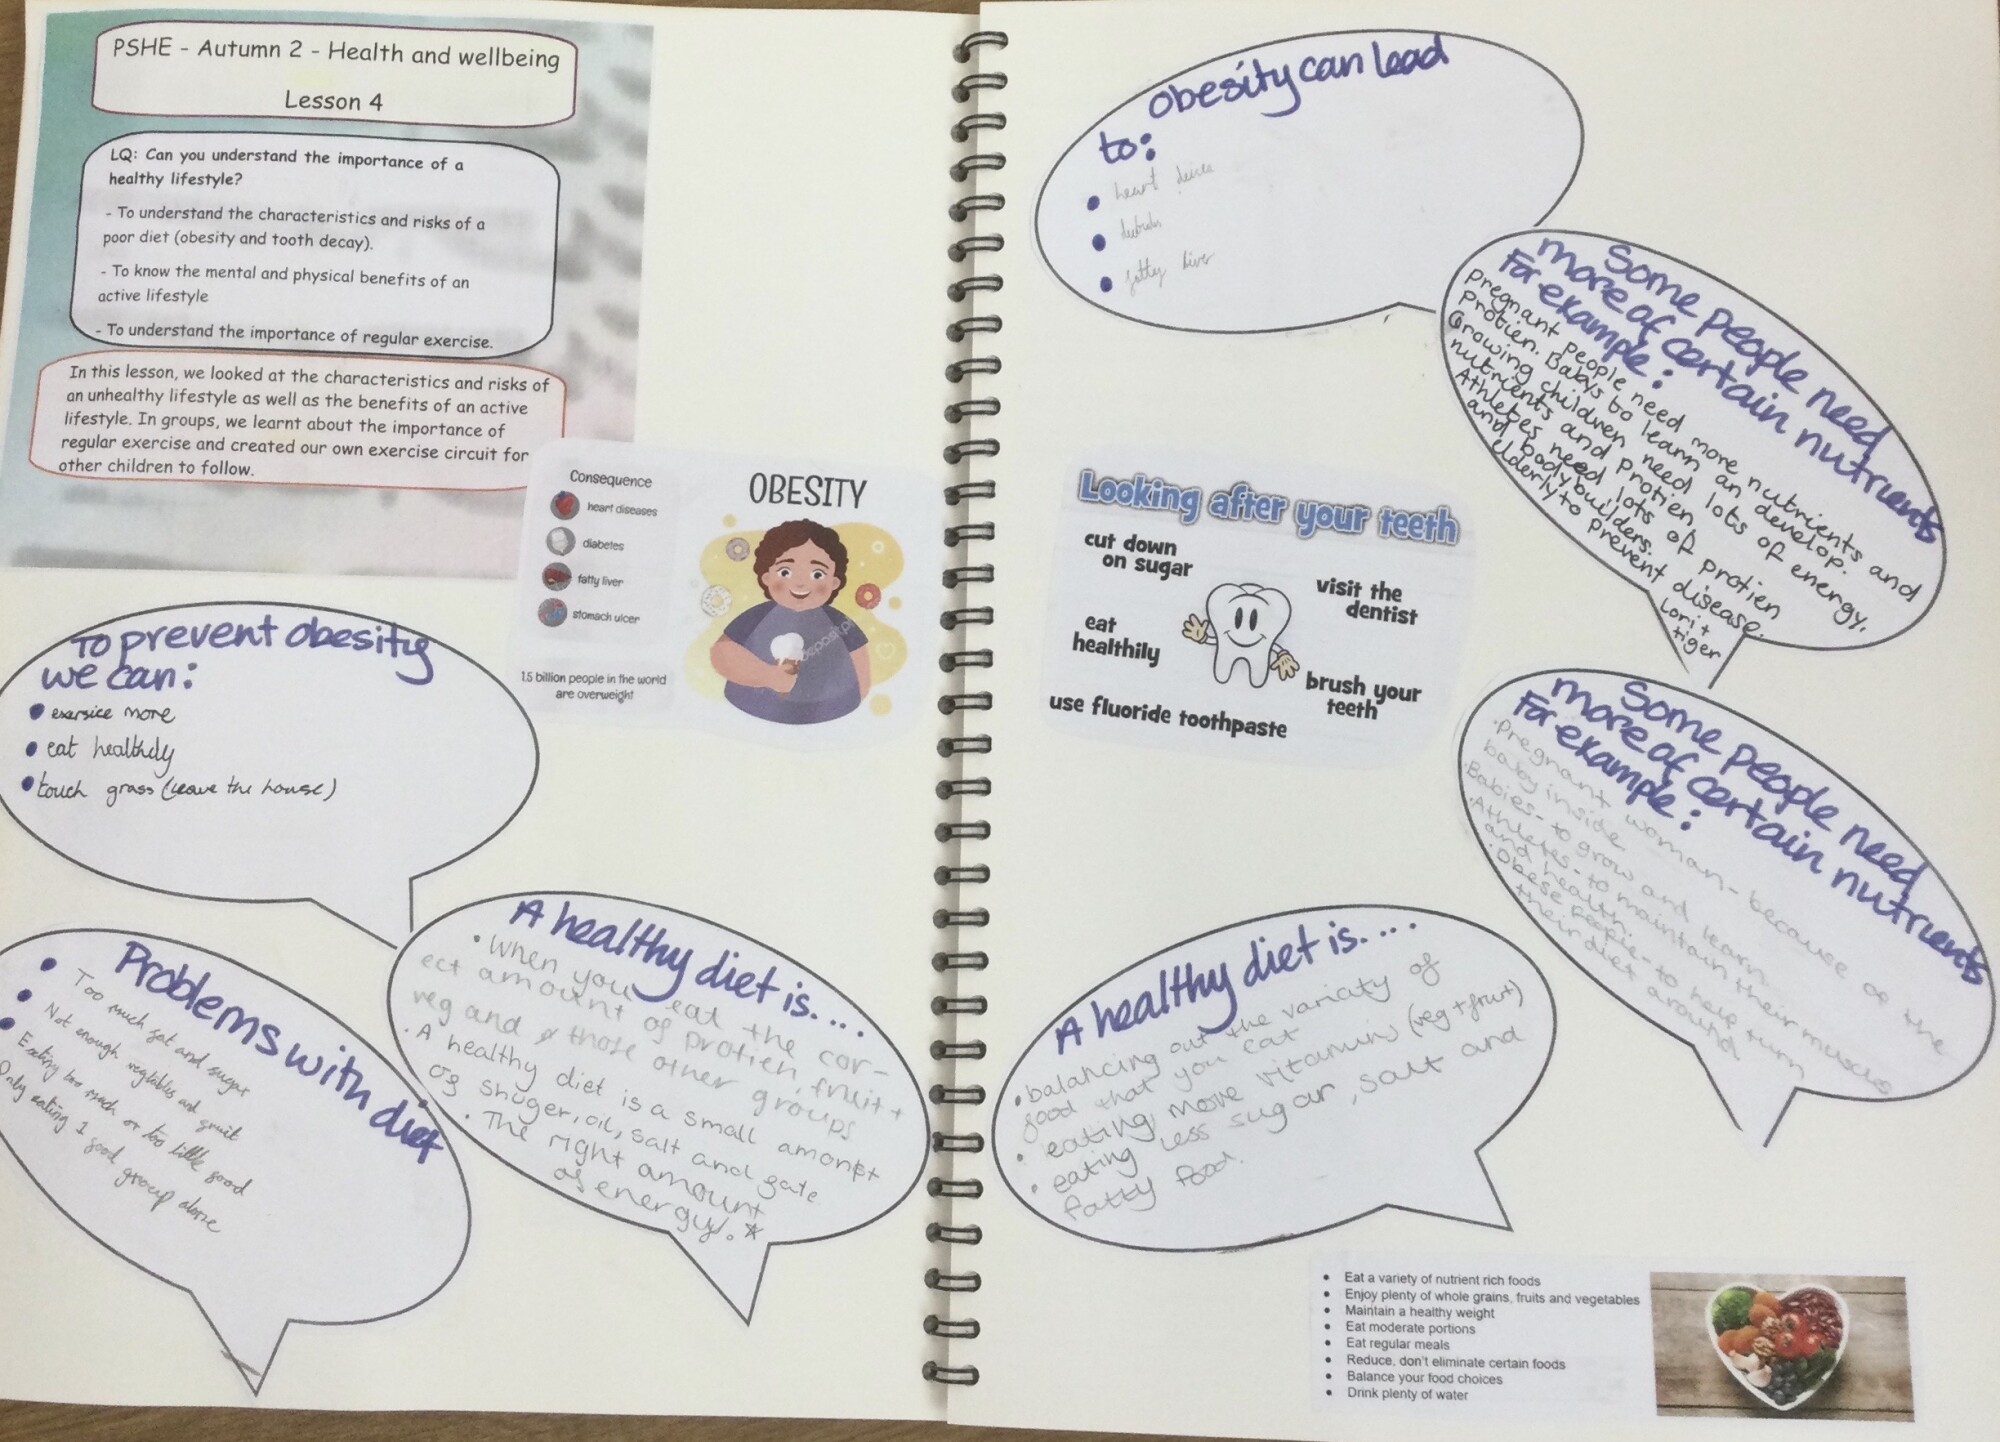 PSHE - Autumn 2 - Health and wellbeing
Lesson 4
LQ: Can you understand the importance of a
healthy lifestyle?
- To understand the characteristics and risks of a
poor diet (obesity and tooth decay).
- To know the mental and physical benefits of an
active lifestyle
- To understand the importance of regular exercise.
In this lesson, we looked at the characteristics and risks of
an unhealthy lifestyle as well as the benefits of an active
lifestyle. In groups, we learnt about the importance of
regular exercise and created our own exercise circuit for
other children to follow.
Consequence
heart diseases
diabetes
fatty liver
stomach ulcer
1.5 billion people in the world
are overweight
OBESITY
To prevent obesity
we can:
• exersice more
• eat healthily
• touch grass (leave the house)
Problems with diet
• Too much fat and sugar
• Not enough vegtables and fruit
• Eating too much or too little food
Only eating 1 food group alone
A healthy diet is....
• When you eat the cor-
ect amount of protien, fruit +
veg and those other groups
• A healthy diet is a small amonpt
of shuger, oil, salt and
• The right amount
of energy!. *
Obesity can lead
to:
• heart
•
• fatty liver
Some people need
more of certain nutrients
For example:
Pregnant people need more nutrients and
protien. Babys to learn an develop.
Growing children need lots of energy,
nutrients and protien
Athletes need lots of protien
and bodybuilders.
Elderly to prevent disease.
Lori +
tiger
Looking after your teeth
cut down
on sugar
visit the
dentist
eat
healthily
brush your
teeth
use fluoride toothpaste
Some people need
more of certain nutrients
For example:
• Pregnant woman - because of the
baby inside
• Babies - to grow and learn
• Athletes - to maintain their muscles
and health
• Obese people - to help turn
their diet around
A healthy diet is....
• balancing out the varicity of
food that you eat
• eating more vitamins (veg + fruit)
• eating less sugar, salt and
fatty food.
• Eat a variety of nutrient rich foods
• Enjoy plenty of whole grains, fruits and vegetables
• Maintain a healthy weight
• Eat moderate portions
• Eat regular meals
• Reduce, don't eliminate certain foods
• Balance your food choices
• Drink plenty of water